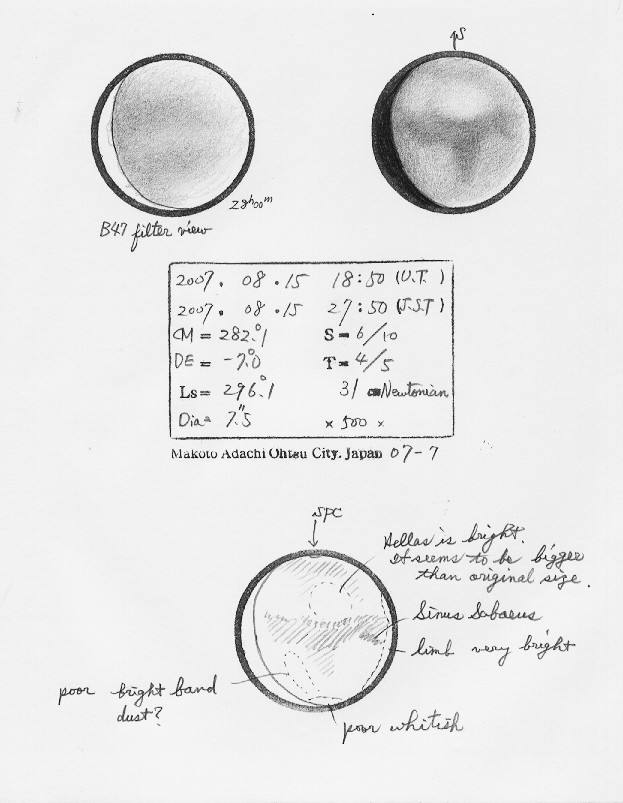 S
28h00m
B47 filter view
2007. 08. 15 18:50 (U.T. )
2007. 08. 15 27:50 (J.S.T)
CM = 282.°1 S = 6/10
DE = -7.°0 T = 4/5
Ls = 296.°1 31 cm Newtonian
Dia = 7."5 × 500 ×
Makoto Adachi Ohtsu City. Japan 07-7
SPC
Hellas is bright.
It seems to be bigger
than original size.
Sinus Sabaeus
limb very bright
poor bright band
dust?
poor whitish